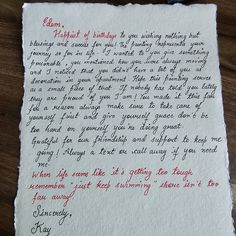 Edem,
Happiest of birthdays to you wishing nothing but
blessings and success for you! This painting represents your
journey so far in life. I wanted to give you something
personable, you mentioned how you were always moving
and I noticed that you didn't have a lot of you as
decoration in your apartment. Hope this painting serves
as a small piece of that. If nobody has told you lately
they are proud of you I am! You made it this far
for a reason always make sure to take care of
yourself first and give yourself grace don't be
too hard on yourself you're doing great.
Grateful for our friendship and support to keep me
going! Always a text or call away if you need
me.
When life seems like it's getting too tough
remember "just keep swimming" shore isn't too
far away.
Sincerely,
Kay